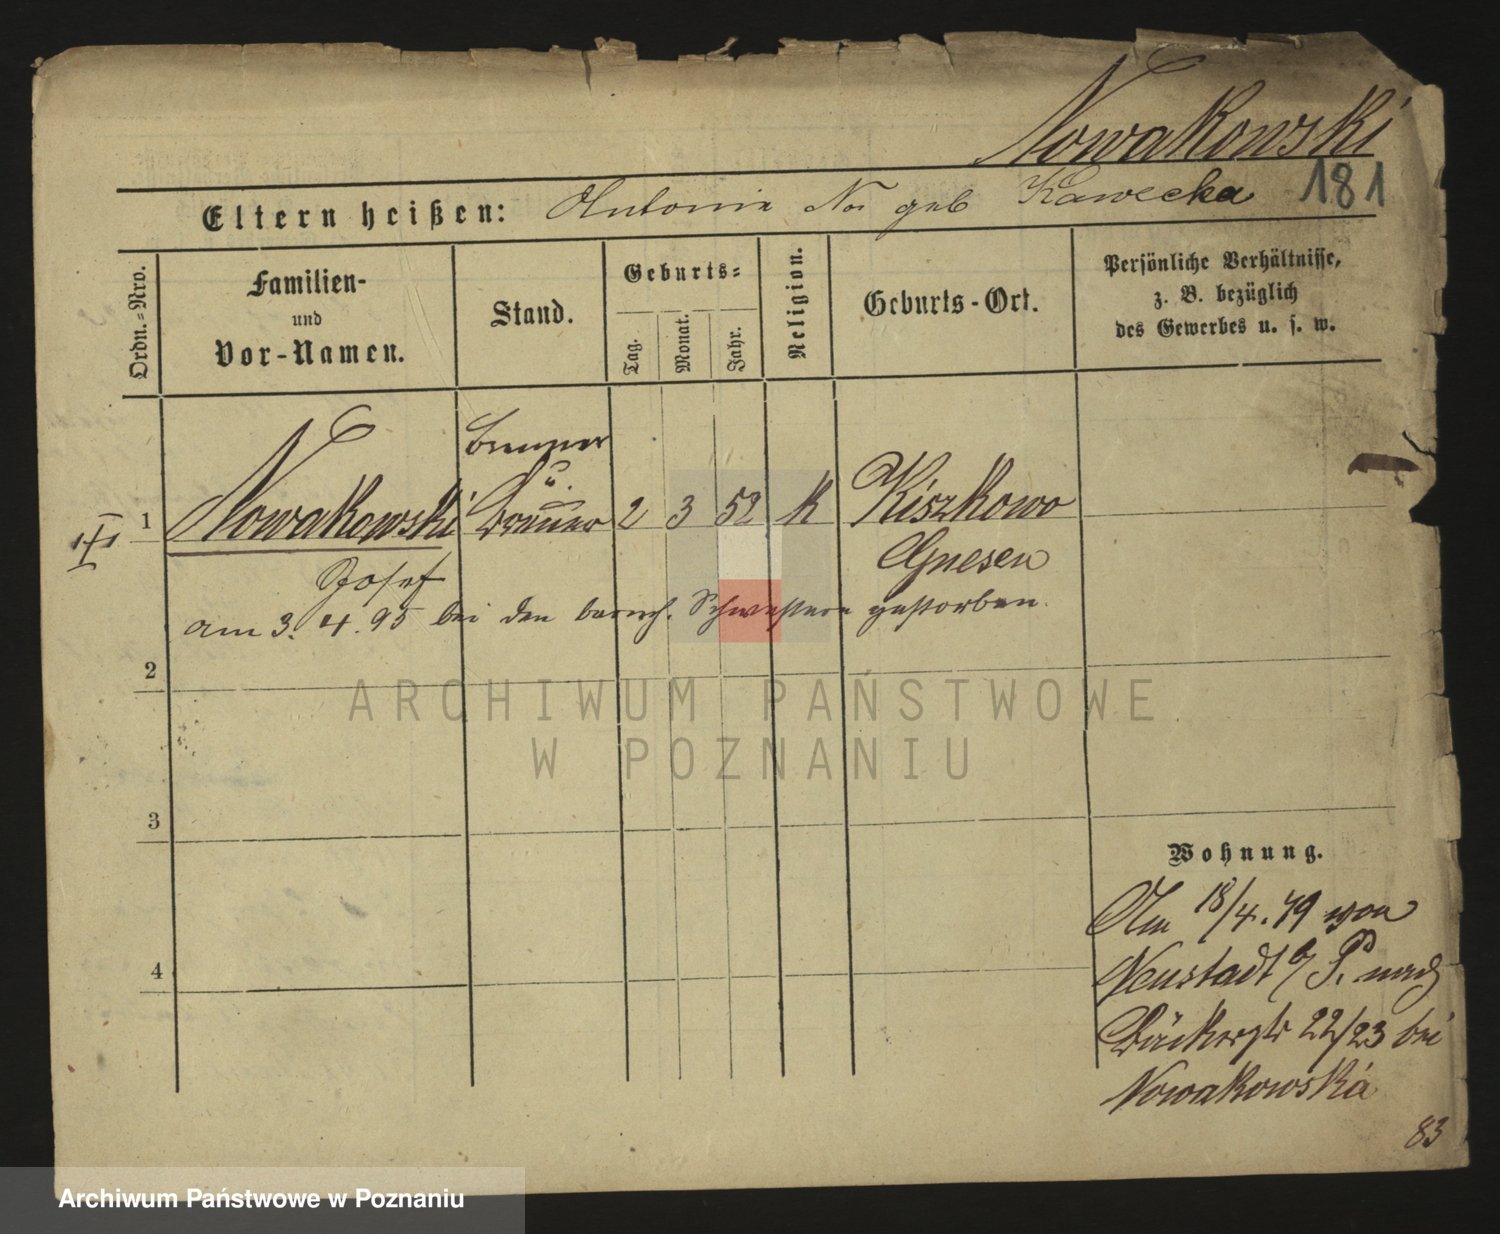 Nowakowski
181
Eltern heißen: Antonie No. geb Kawecka
Ordn.-Nro.
Familien-
und
Vor-Namen.
Stand.
Geburts-
Tag.
Monat.
Jahr.
Religion.
Geburts-Ort.
Persönliche Verhältnisse,
z. B. bezüglich
des Gewerbes u. s. w.
1 Nowakowski
Brenner
u.
Brauer
2 3 52 k Kiszkowo
Gnesen
Josef
am 3. 4. 95 bei den barmh. Schwestern gestorben.
2
ARCHIWUM PAŃSTWOWE
W POZNANIU
3
4
Wohnung.
Am 18/4. 79 von
Neustadt a/P. nach
Bäckerstr 22/23 bei
Nowakowska
83
Archiwum Państwowe w Poznaniu